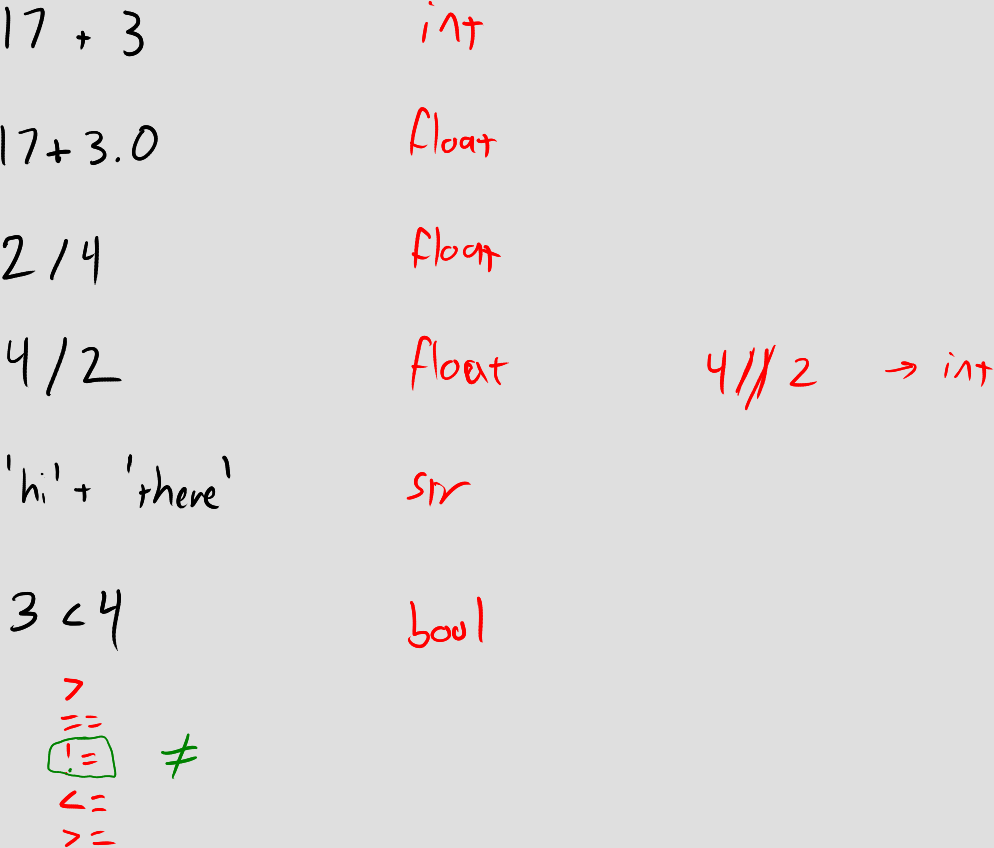 17 + 3 int
17 + 3.0 float
2 / 4 float
4 / 2 float 4 // 2 → int
'hi' + 'there' str
3 < 4 bool
>
==
!= ≠
<=
>=